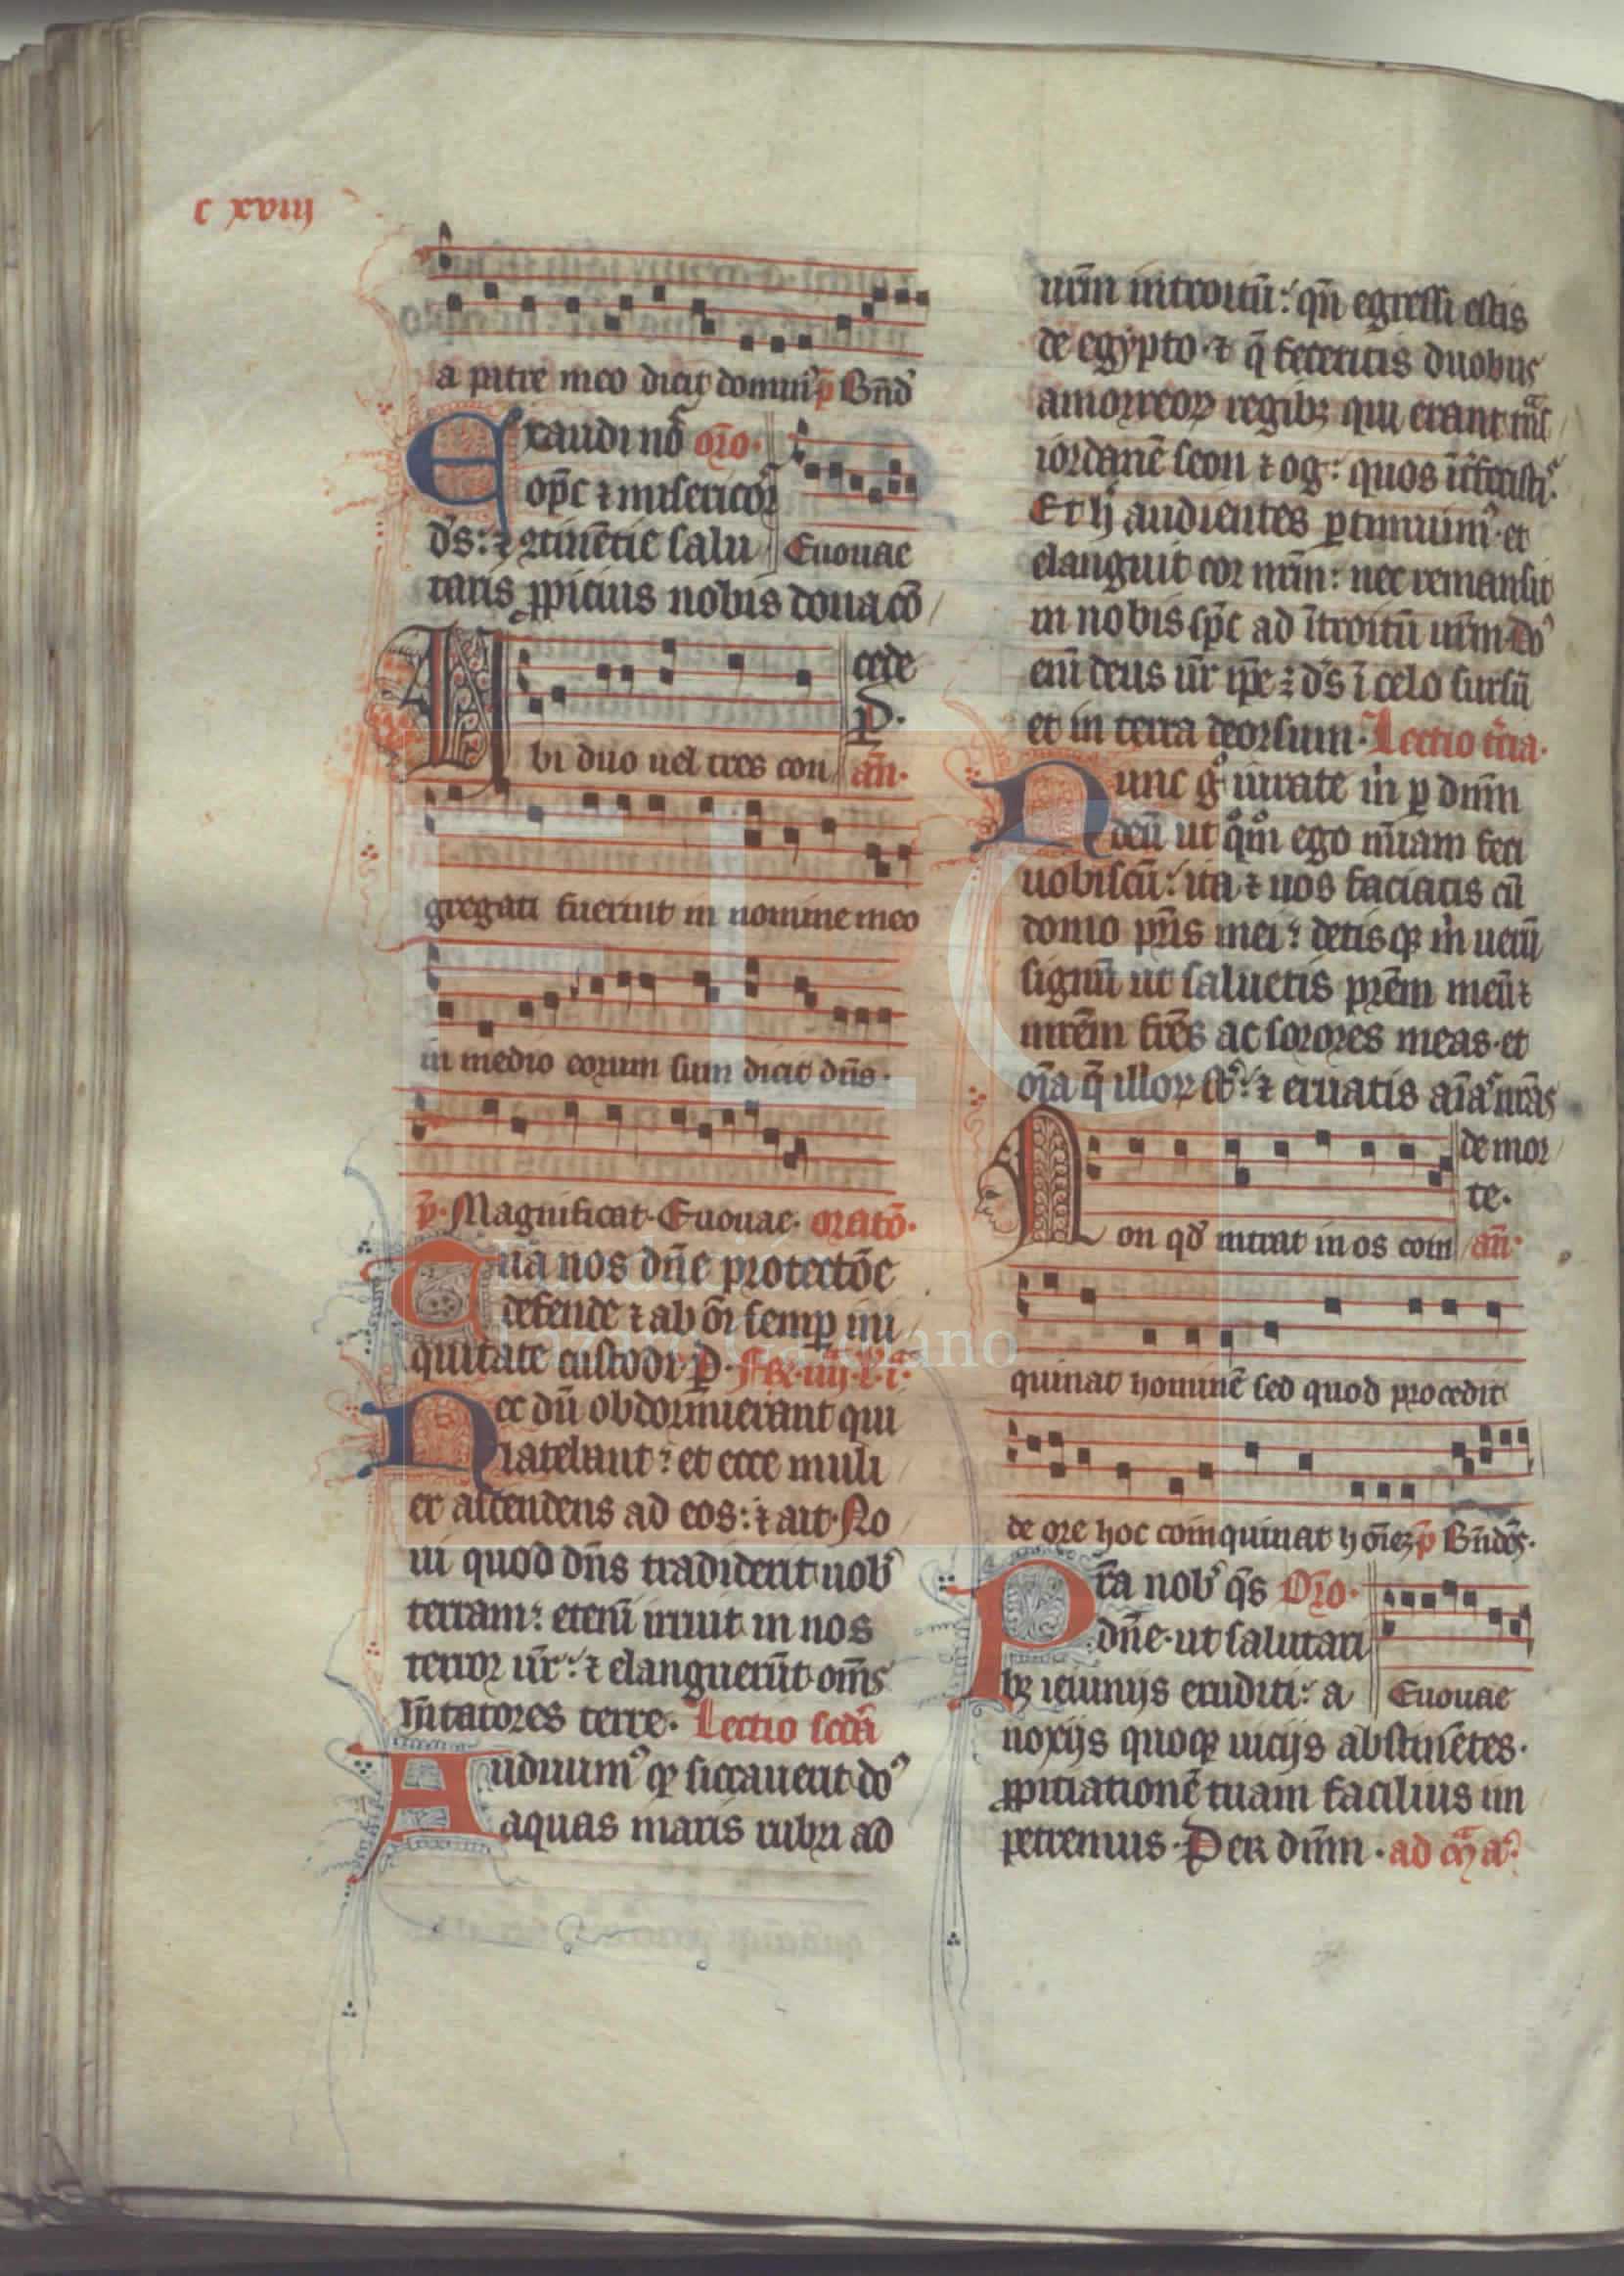 c xviij
a patre meo dicit dominꝰ p̄ Bn̄d̓
Exaudi nos or̄o.
op̄c ⁊ misericor
d̓s: ⁊ ꝯtinētie salu
Euouae
taris ꝓpicius nobis dona cō
cede
P.
Ubi duo uel tres con an̄.
gregati fuerint in nomine meo
in medio eorum sum dicit dn̄s.
p̄. Magnificat. Euouae. oratō.
Tua nos dn̄e protectōe
defende ⁊ ab ōi semꝑ ini
quitate custodi. P. Fr̄. iiij. l. i.ᵃ
Nec dū obdormierant qui
latebant: et ecce muli
er ascendens ad eos: ⁊ ait. No
ui quod dn̄s tradiderit uob̓
terram: eteni irruit in nos
terror ur̄: ⁊ elanguerūt om̄s
hītatores terre. Lectio scd̄a
Audiuimꝰ ꝙ siccauerit do̓
aquas maris rubri ad
ur̄m introitū: qn̄ egressi estis
de egypto. ⁊ q̄ feceritis duobus
amorreoꝝ regibꝫ qui erant tn̄s
iordanē seon ⁊ og: quos īt̓fecisti̓.
Et h̓ audientes ꝑtimuimꝰ. et
elanguit cor nr̄m: nec remansit
in nobis sp̄c ad ītroitū ur̄m. Do̓
eni deus ur̄ ip̄e ÷ d̓s ī celo sursū
et in terra deorsum. Lectio tc̄ia.
Nunc gͦ iurate m̓ ꝑ dn̄m
deū ut qͦmͦ ego mi̅am feci
uobiscū: ita ⁊ uos faciatis cū
domo pr̄is mei: detisqꝫ m̓ uerū
signū ut saluetis pr̄em meū ⁊
mr̄em fr̄es ac sorores meas. et
oi̅a q̄ illoꝝ st̓: ⁊ eruatis ai̅as nr̄as
de mor
te.
Non qd̓ intrat in os coin an̄.
quinat hominē sed quod procedit
de ore hoc coinquinat hoi̅eꝫ p̄ Bn̄dc̄s.
Pr̄a nob̓ q̄s Or̄o.
dn̄e. ut salutari
bꝫ ieiunijs eruditi: a
Euouae
noxijs quoqꝫ uicijs abstinētes.
ꝓpitiationē tuam facilius im
petremus. Per dn̄m. ad mᵃ̄ aꝰ.